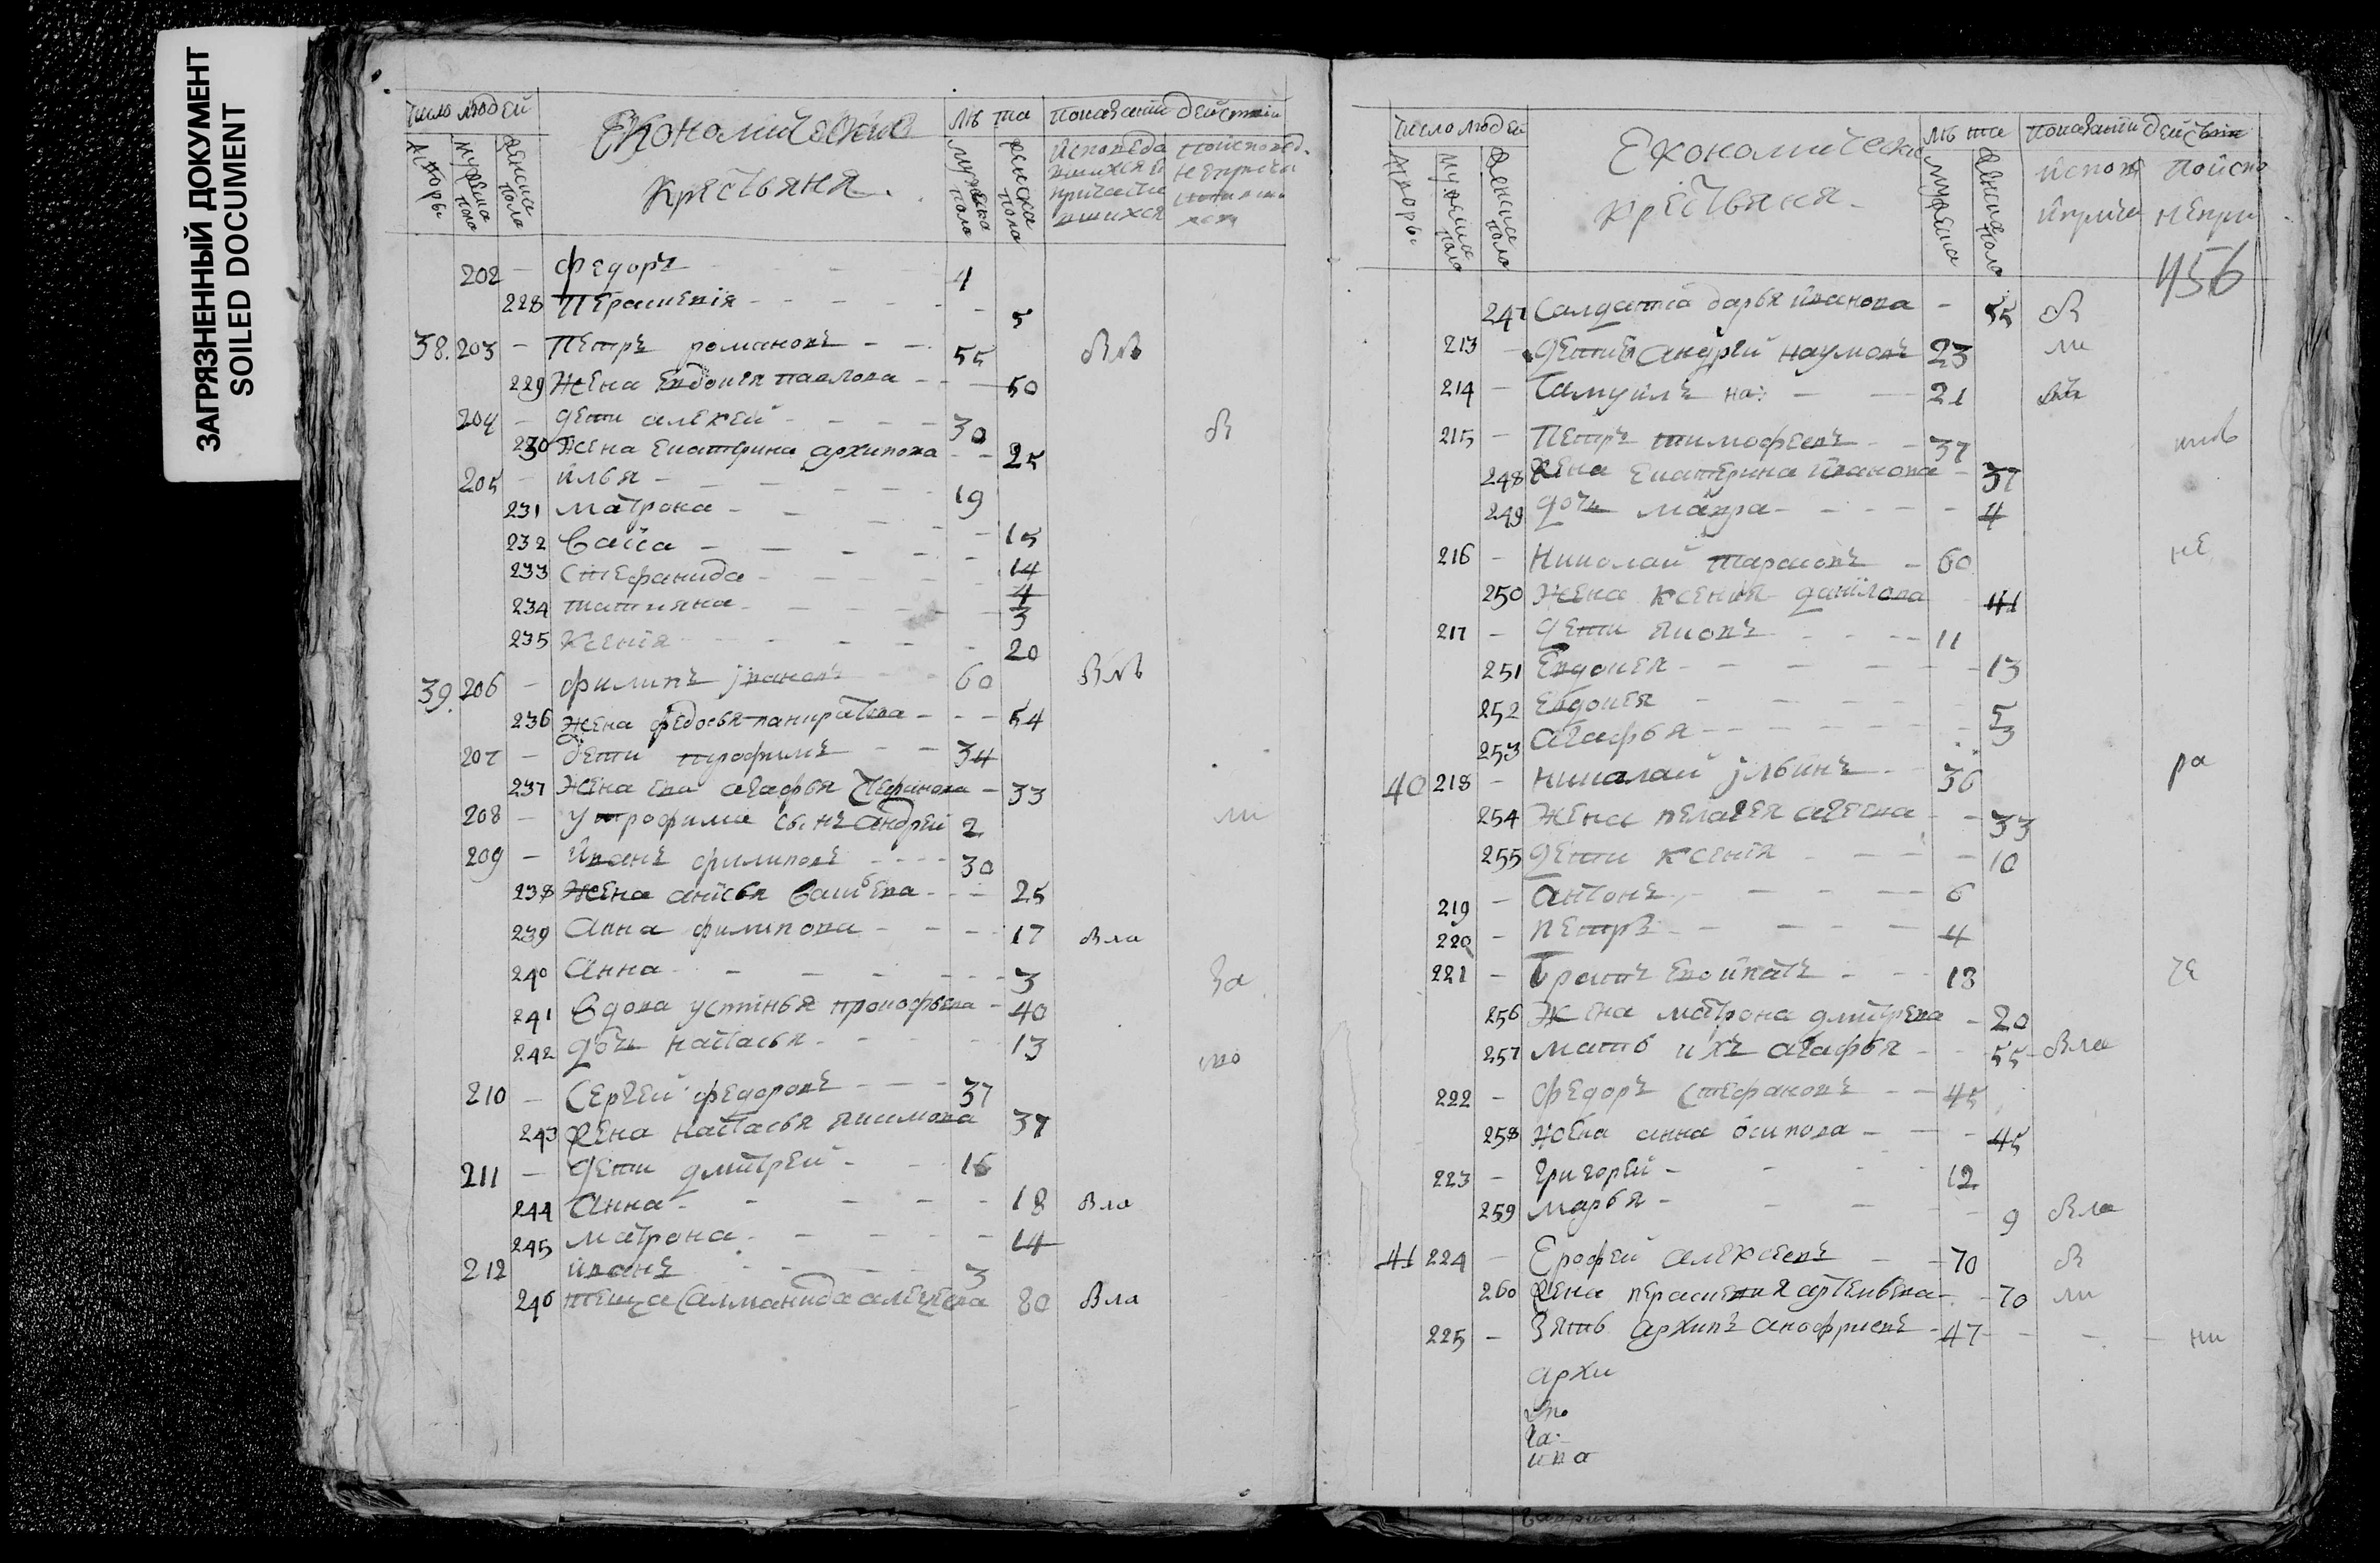 ЗАГРЯЗНЕННЫЙ ДОКУМЕНТ
SOILED DOCUMENT
число людей
дворы
мужеска пола
женска пола
Економические
крестьяня
лѣта
мужеска пола
женска пола
показаніи действіи
исповеда
вшихся и
причасти
вшихся
поисповед.
непричас
202 — федоръ — 4
228 Перасшевія — 5
38. 203 — Петръ романовъ — 55 вл
229 жена Евдокія павлова — 50
204 — дети алексей — 30 в
230 жена екатерина архипова — 25
205 — илья — 19
231 матрона — 15
232 васса — 14
233 стефанида — 4
234 татияна — 3
235 ксенія — 20
39. 206 — филипъ івановъ 60 вл
236 жена федосья панкратова — 54
207 — дети трофимъ — 34
237 жена ево агафья стефанова — 33
208 — у трофима сынъ андрей 2 ли
209 — иванъ филиповъ — 30
238 жена анисья васильева — 25
239 Анна филипова — 17 вла
240 Анна — 3 за
241 вдова устинья прокофьева — 40
242 дочь настасья — 13
210 — Сергей федоровъ — 37
243 жена настасья якимова 37
211 — дети дмитрей — 16
244 Анна — 18 вла
245 матрона — 14
212 иванъ 3
246 теща саламанида алексеева 80 вла
число людей
дворы
мужеска пола
женска пола
Економически
крестьяня
лѣта
мужеска
женска пола
показаніи действіи
испов
ипричас
поиспо
непри
456
247 Салдатка дарья иванова — 55 в
213 — дети андрей наумовъ 23 ли
214 — Самуилъ на: — 21
215 — Петръ тимофеевъ — 37
248 жена екатерина иванова — 37
249 дочь мавра — 4
216 — Николай тарасовъ — 60 не
250 жена ксенія данилова 41
217 — дети яковъ — 11
251 Евдокея — 13
252 Евдокея 5
253 агафья — 3
40 218 — николай ільинъ — 36 ра
254 жена пелагея агеева — 33
255 дети ксенія — 10
219 — Антонъ — 6
220 — петръ — 4
221 — братъ 13 че
256 жена матрона дмитрева — 20
257 мать ихъ агафья — 55 — вла
222 — федоръ стефановъ — 45
258 жена анна осипова — 45
223 — григорей — 12
259 марья — 9 вла
41 224 — Ерофей алексеевъ — 70 в
260 жена артемьева — 70 ли
225 — Зять архипъ анофриевъ — 47 — ни
архи